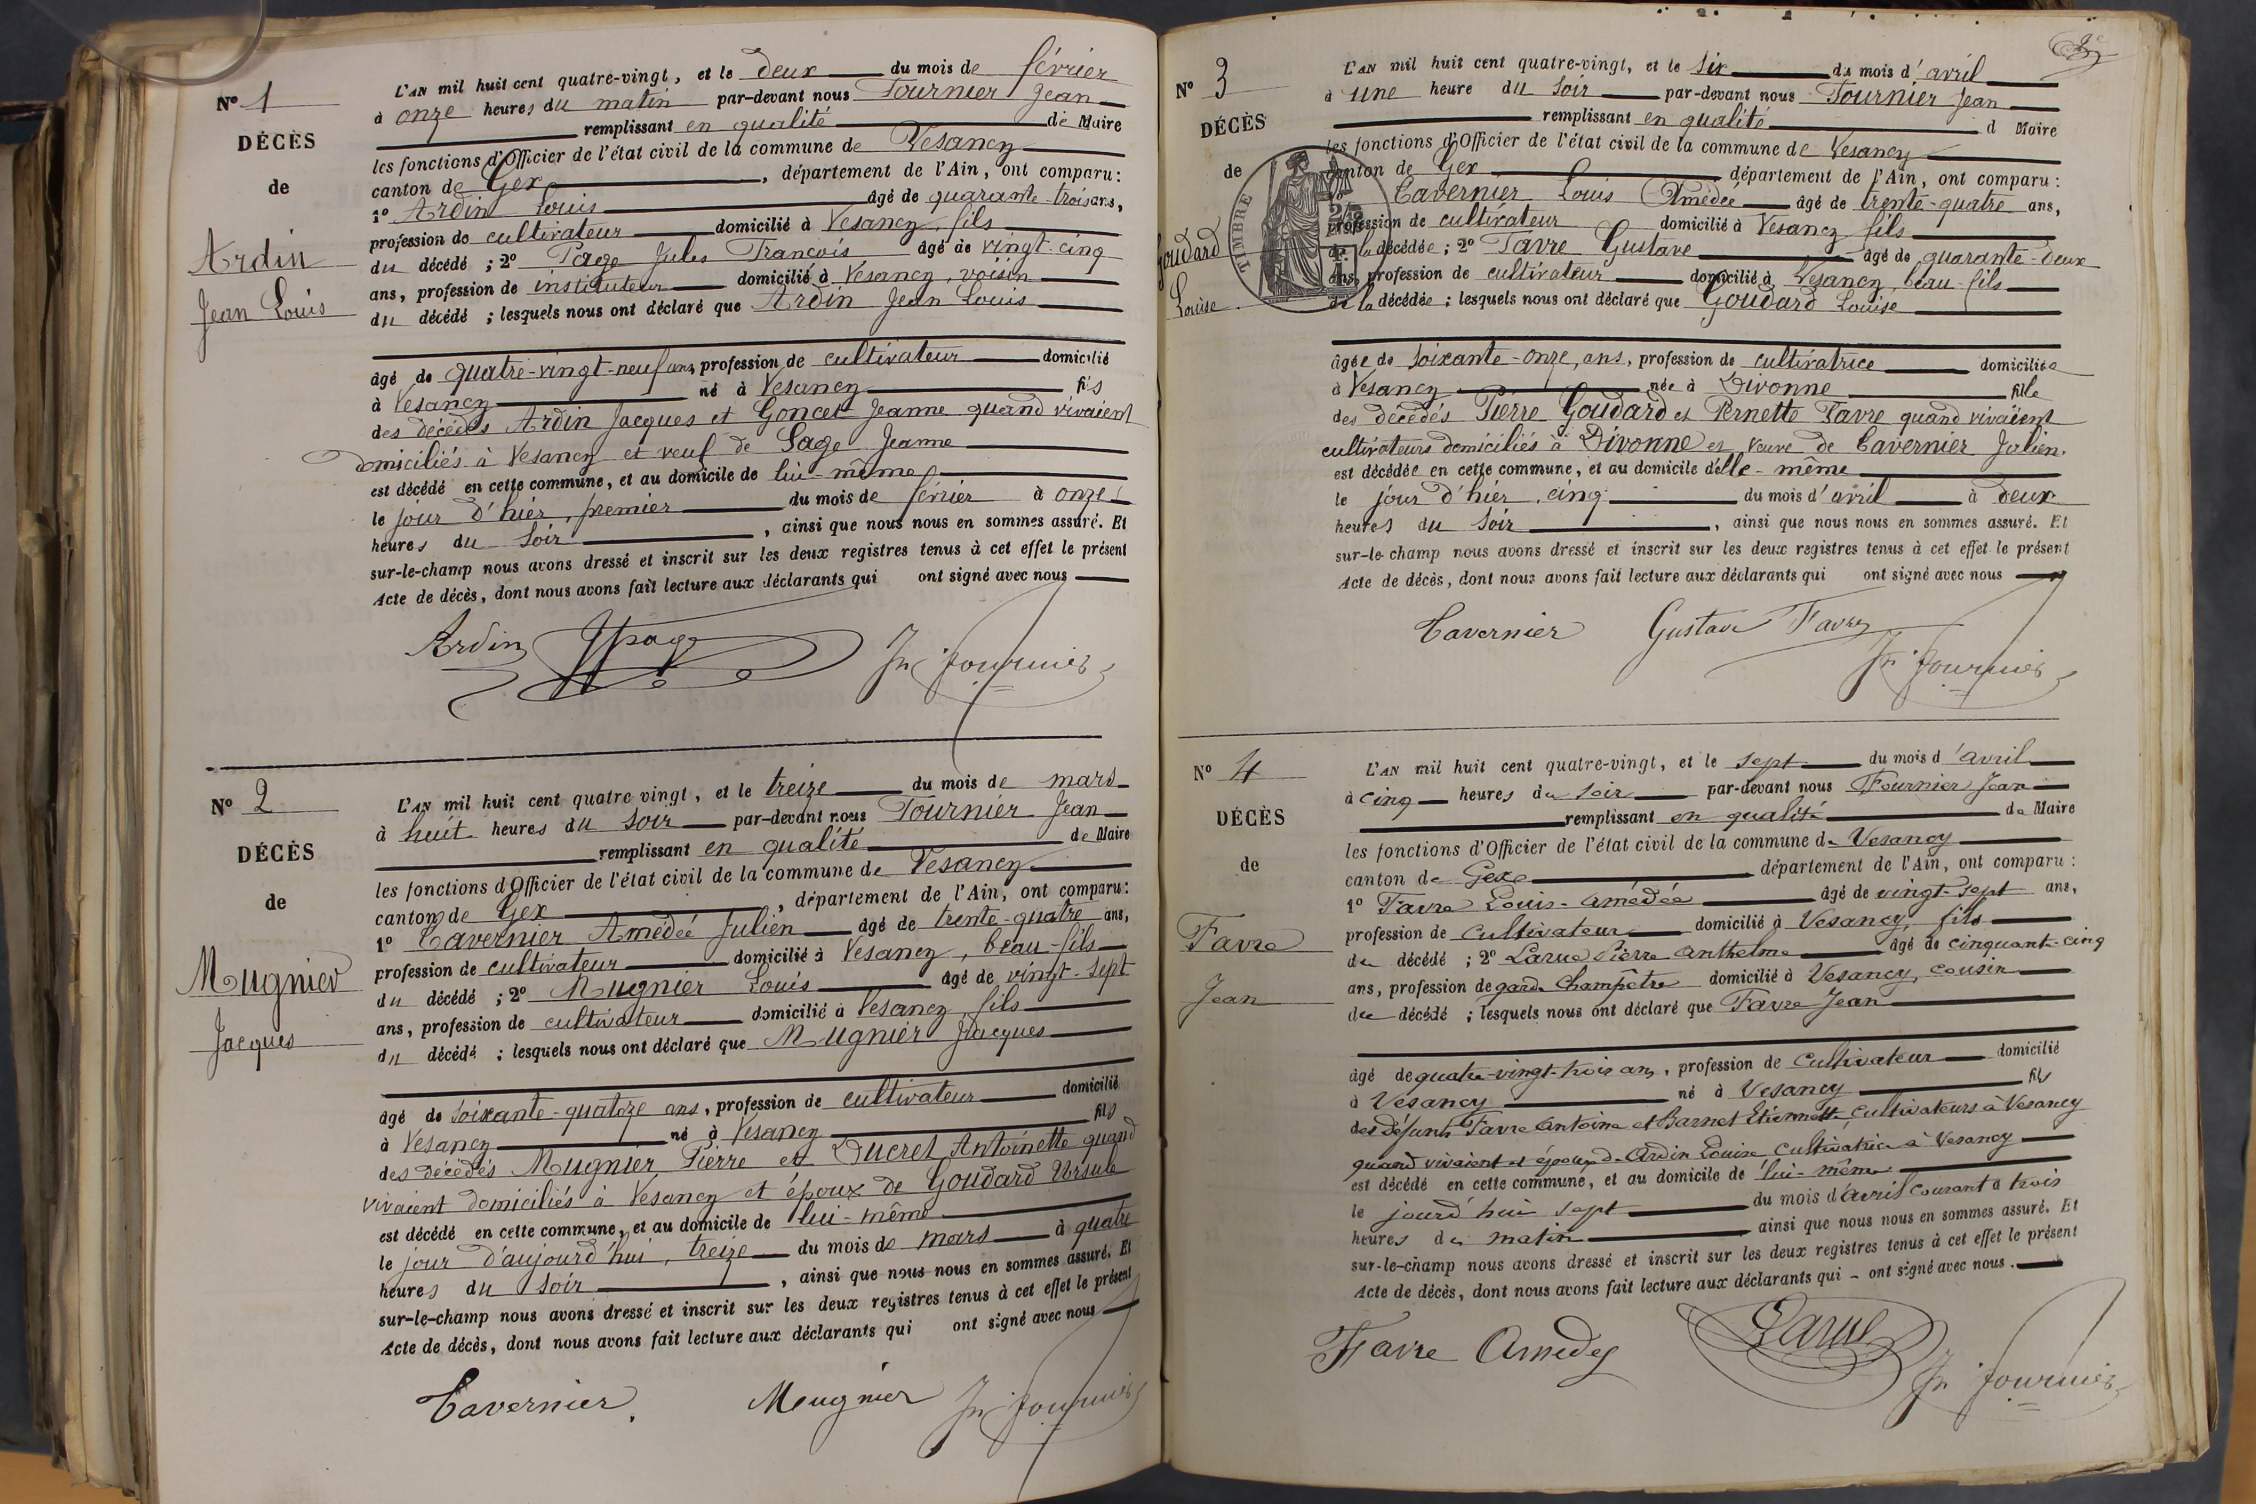 Nº 1
DÉCÈS
de
Ardin
Jean Louis
L'AN mil huit cent quatre-vingt, et le deux du mois de février
à onze heures du matin par-devant nous Fournier Jean
remplissant en qualité de Maire
les fonctions d'Officier de l'état civil de la commune de Vesancy
canton de Gex, département de l'Ain, ont comparu:
1º Ardin Louis âgé de quarante-trois ans,
profession de cultivateur domicilié à Vesancy, fils
du décédé ; 2º Page Jules François âgé de vingt-cinq
ans, profession de instituteur domicilié à Vesancy, voisin
du décédé ; lesquels nous ont déclaré que Ardin Jean Louis
âgé de quatre-vingt-neuf ans, profession de cultivateur domicilié
à Vesancy né à Vesancy fils
des décédés Ardin Jacques et Goncet Jeanne quand vivaient
domiciliés à Vesancy et veuf de Sage Jeanne
est décédé en cette commune, et au domicile de lui-même
le jour d'hier, premier du mois de février à onze
heures du soir, ainsi que nous nous en sommes assuré. Et
sur-le-champ nous avons dressé et inscrit sur les deux registres tenus à cet effet le présent
Acte de décès, dont nous avons fait lecture aux déclarants qui ont signé avec nous
Ardin JFPage Jn Fournier
Nº 2
DÉCÈS
de
Mugnier
Jacques
L'AN mil huit cent quatre vingt, et le treize du mois de mars
à huit heures du soir par-devant nous Fournier Jean
remplissant en qualité de Maire
les fonctions d'Officier de l'état civil de la commune de Vesancy
canton de Gex, département de l'Ain, ont comparu:
1º Tavernier Amédéé Julien âgé de trente-quatre ans,
profession de cultivateur domicilié à Vesancy, beau-fils
du décédé ; 2º Mugnier Louis âgé de vingt-sept
ans, profession de cultivateur domicilié à Vesancy, fils
du décédé ; lesquels nous ont déclaré que Mugnier Jacques
âgé de soixante-quatoze ans, profession de cultivateur domicilié
à Vesancy né à Vesancy fils
des décédés Mugnier Pierre et Ducret Antoinette quand
vivaient domiciliés à Vesancy et époux de Goudard Ursule
est décédé en cette commune, et au domicile de lui-même
le jour d'aujourd'hui, treize du mois de mars à quatre
heures du soir, ainsi que nous nous en sommes assuré. Et
sur-le-champ nous avons dressé et inscrit sur les deux registres tenus à cet effet le présent
Acte de décès, dont nous avons fait lecture aux déclarants qui ont signé avec nous
Tavernier Mugnier Jn Fournier
Nº 3
DÉCÈS
de
Goudard
Louise
TIMBRE
L'AN mil huit cent quatre-vingt, et le six du mois d'avril
à une heure du soir par-devant nous Fournier Jean
remplissant en qualité d Maire
les fonctions d'Officier de l'état civil de la commune de Vesancy
canton de Gex département de l'Ain, ont comparu:
Tavernier Louis Amédée âgé de trente-quatre ans,
profession de cultivateur domicilié à Vesancy fils
de la décédée ; 2º Favre Gustave âgé de quarante-deux
ans, profession de cultivateur domicilié à Vesancy, beau-fils
de la décédée ; lesquels nous ont déclaré que Goudard Louise
âgée de soixante-onze, ans, profession de cultivatrice domiciliée
à Vesancy née à Divonne fille
des décédés Pierre Goudard et Pernette Favre quand vivaient
cultivateurs domiciliés à Divonne et veuve de Tavernier Julien.
est décédée en cette commune, et au domicile d'elle-même
le jour d'hier, cinq du mois d'avril à deux
heures du soir, ainsi que nous nous en sommes assuré. Et
sur-le-champ nous avons dressé et inscrit sur les deux registres tenus à cet effet le présent
Acte de décès, dont nous avons fait lecture aux déclarants qui ont signé avec nous
Tavernier Gustave Favre
Jn Fournier
Nº 4
DÉCÈS
de
Favre
Jean
L'AN mil huit cent quatre-vingt, et le sept du mois d'avril
à cinq heures du soir par-devant nous Fournier Jean
remplissant en qualité de Maire
les fonctions d'Officier de l'état civil de la commune de Vesancy
canton de Gex département de l'Ain, ont comparu:
1º Favre Louis-Amédée âgé de vingt-sept ans,
profession de cultivateur domicilié à Vesancy, fils
du décédé ; 2º Larue Pierre Anthelme âgé de cinquante-cinq
ans, profession de garde Champêtre domicilié à Vesancy, cousin
du décédé ; lesquels nous ont déclaré que Favre Jean
âgé de quatre-vingt-trois ans, profession de cultivateur domicilié
à Vesancy né à Vesancy fils
des défunts Favre Antoine et Barnet Etiennette cultivateurs à Vesancy
quand vivaient et époux d'Ardin Louise cultivatrice à Vesancy
est décédé en cette commune, et au domicile de lui-même
le jourd'hui sept du mois d'avril courant à trois
heures du matin ainsi que nous nous en sommes assuré. Et
sur-le-champ nous avons dressé et inscrit sur les deux registres tenus à cet effet le présent
Acte de décès, dont nous avons fait lecture aux déclarants qui - ont signé avec nous.
Favre Amedey Larue Jn Fournier